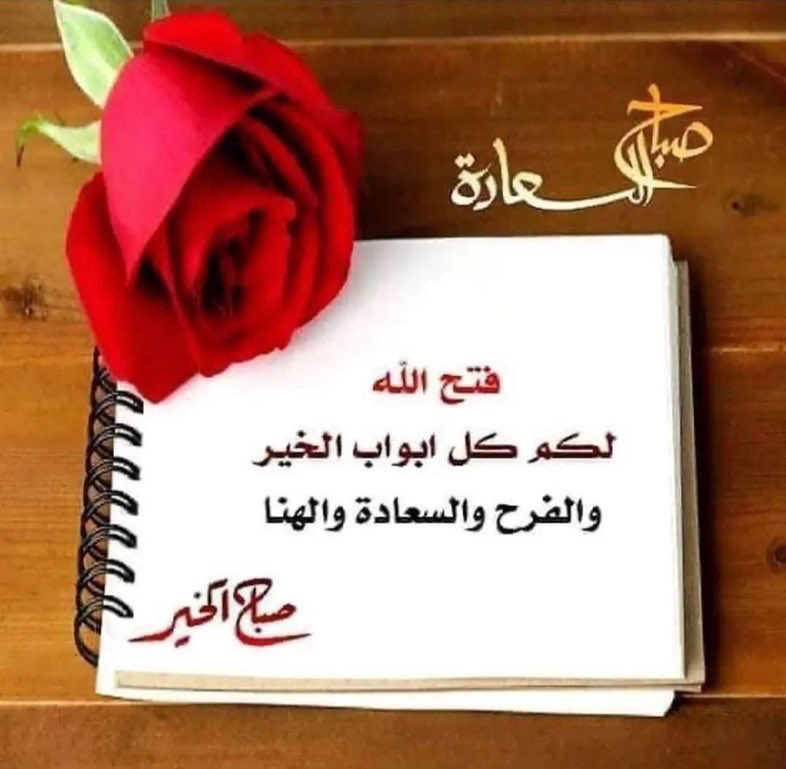 صباح السعادة
فتح الله
لكم كل ابواب الخير
والفرح والسعادة والهنا
صباح الخير